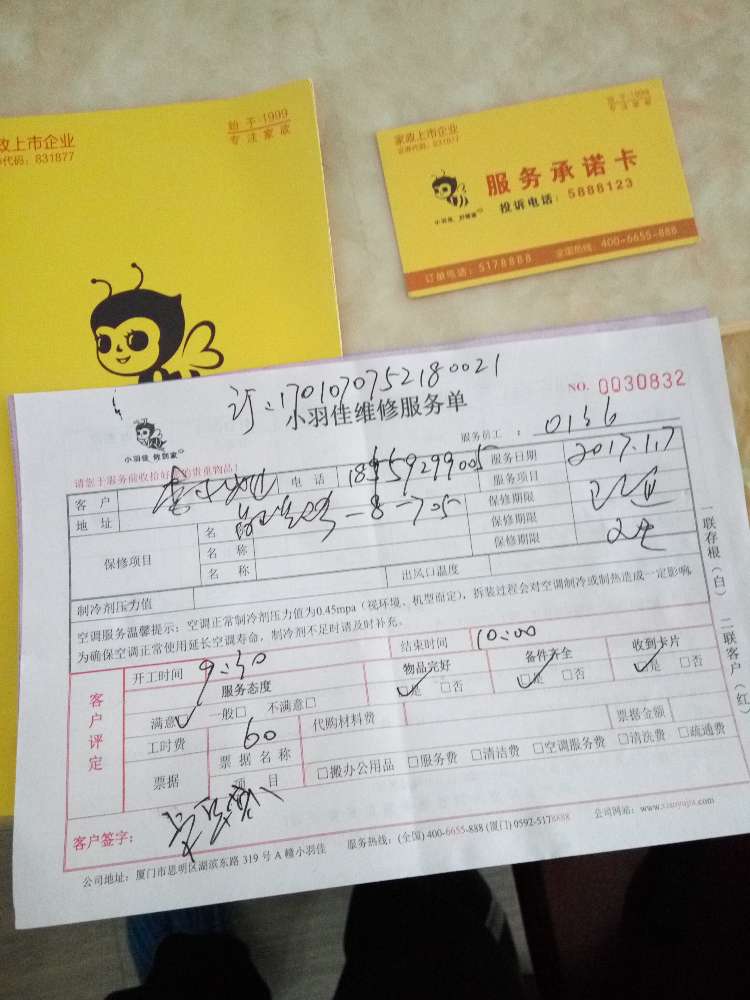 政上市企业
代码：831877
始于·1999
专注家政
家政上市企业
证券代码：831877
始于·1999
专注家政
服务承诺卡
投诉电话：5888123
小羽佳，
订单电话：5178888 全国热线：400-6655-888
订：170107075218 0021
小羽佳维修服务单
NO. 0030832
小羽佳 伴到家
服务员工：0136
请您于服务前收拾好 的贵重物品！
客户 电话 服务日期 2017.1.7
地址 -8-705 服务项目
保修项目 名 保修期限
名称 保修期限
名称 保修期限
制冷剂压力值 出风口温度
空调服务温馨提示：空调正常制冷剂压力值为0.45mpa（视环境、机型而定），拆装过程会对空调制冷或制热造成一定影响，
为确保空调正常使用延长空调寿命，制冷剂不足时请及时补充。
客户评定
开工时间 9:30 结束时间 10:00
服务态度 物品完好 备件齐全 收到卡片
满意 一般□ 不满意□ 是 □否 是 □否 是 □否
工时费 60 代购材料费 票据金额
票据 票据名称 □搬办公用品 □服务费 □清洁费 □空调服务费 □清洗费 □疏通费
项目
客户签字：
公司地址：厦门市思明区湖滨东路319号A幢小羽佳 服务热线：(全国) 400-6655-888 (厦门) 0592-5178888 公司网站：www.xiaoyujia.com
一联存根（白） 二联客户（红）